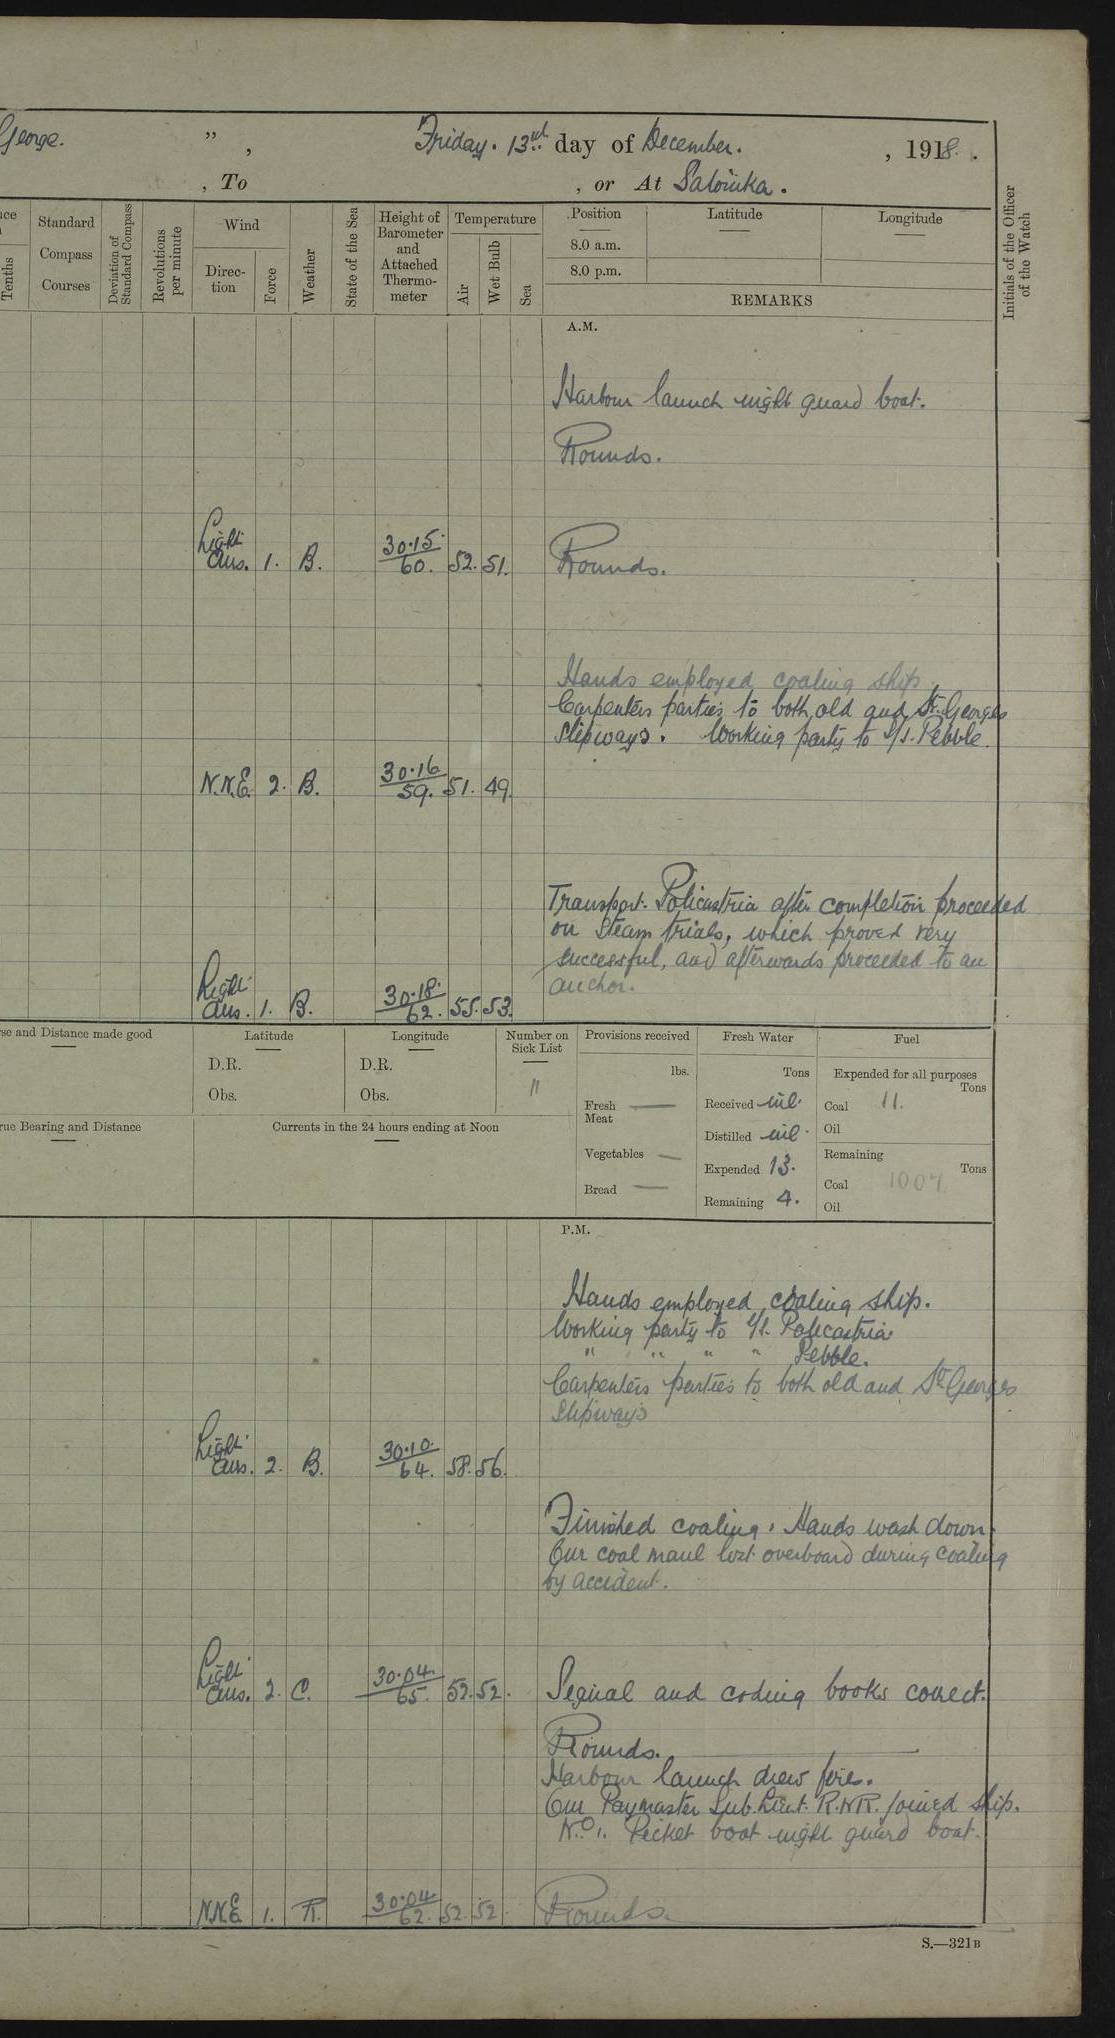 George. " , Friday. 13th day of December. , 1918. .
, To , or At Salonika.
Tenths
Standard Compass Courses
Deviation of Standard Compass
Revolutions per minute
Wind
Direction
Force
Weather
State of the Sea
Height of Barometer and Attached Thermometer
Temperature
Air
Wet Bulb
Sea
Position Latitude Longitude
8.0 a.m.
8.0 p.m.
REMARKS
Initials of the Officer of the Watch
A.M.
Harbour launch night guard boat.
Rounds.
Light airs. 1. B. 30.15/60. 52. 51. Rounds.
Hands employed coaling ship
Carpenters parties to both old and St. Georges
Slipways. Working party to S/S. Pebble.
N.N.E. 2. B. 30.16/59. 51. 49.
Transport. Policastria after completion proceeded
on steam trials, which proved very
successful, and afterwards proceeded to an
anchor.
Light airs. 1. B. 30.18/62. 55. 53.
se and Distance made good
Latitude
D.R.
Obs.
Longitude
D.R.
Obs.
Number on Sick List
11
Provisions received
lbs.
Fresh Meat —
Vegetables —
Bread —
Fresh Water
Tons
Received nil.
Distilled nil.
Expended 13.
Remaining 4.
Fuel
Expended for all purposes
Tons
Coal 11.
Oil
Remaining
Tons
Coal 1007
Oil
rue Bearing and Distance
Currents in the 24 hours ending at Noon
P.M.
Hands employed coaling ship.
Working party to S/S. Policastria
" " " " Pebble.
Carpenters parties to both old and St. Georges
Slipways
Light airs. 2. B. 30.10/64. 58. 56.
Finished coaling. Hands wash down.
One coal maul lost overboard during coaling
by accident.
Light airs. 2. C. 30.04/65. 52. 52. Signal and coding books correct.
Rounds.
Harbour launch drew fires.
One Paymaster Sub. Lieut. R.N.R. joined ship.
No. 1. Picket boat night guard boat.
N.N.E 1. R. 30.04/62. 52. 52 Rounds.
S.—321B